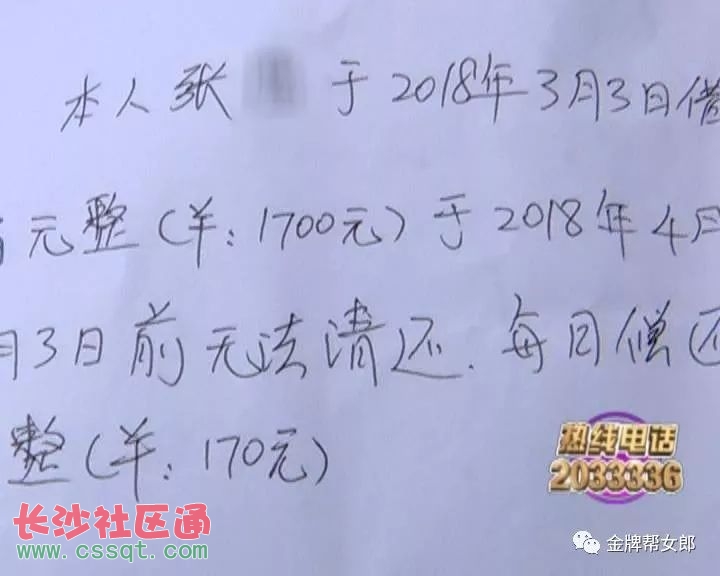 本人张 于2018年3月3日借
元整(羊:1700元)于2018年4月
月3日前无法清还.每日偿还
整(羊:170元)
热线电话
2033336
长沙社区通
www.cssqt.com
金牌帮女郎